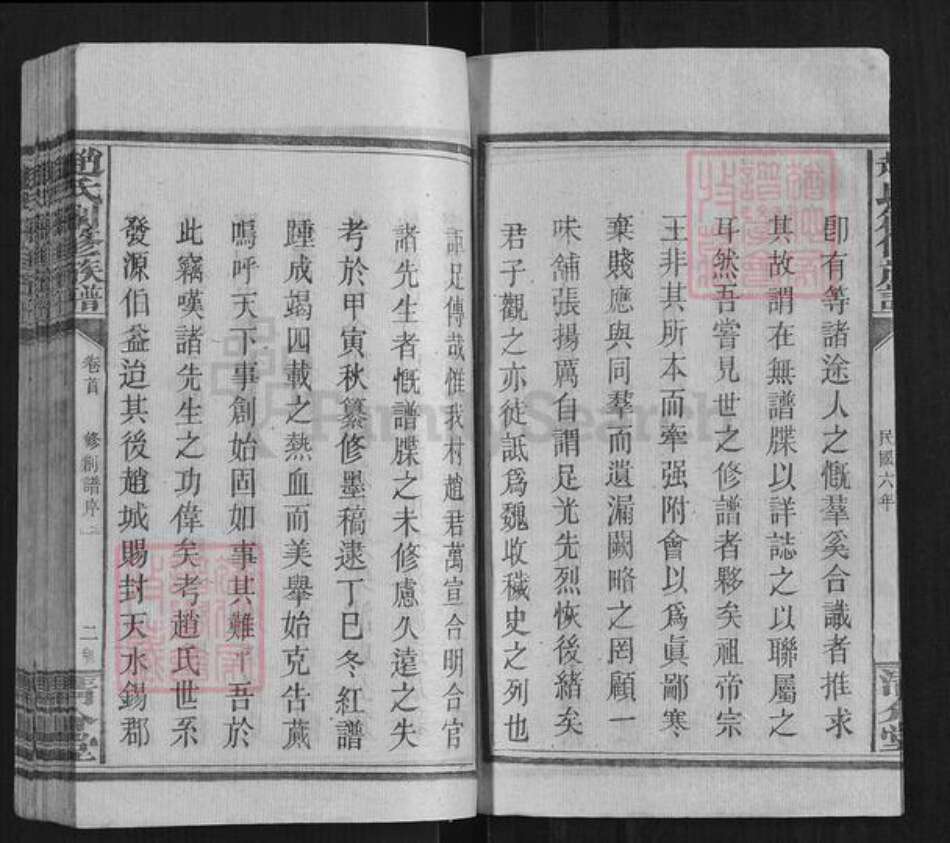 趙氏創修族譜
民國六年
清介堂
卽有等諸途人之慨羣奚合識者推求
其故謂在無譜牒以詳誌之以聯屬之
耳然吾嘗見世之修譜者夥矣祖帝宗
王非其所本而牽强附會以爲眞鄙寒
棄賤應與同羣而遺漏闕略之罔顧一
味舖張揚厲自謂足光先烈恢後緒矣
君子觀之亦徒詆爲魏收穢史之列也
詎足傳哉惟我村趙君萬宣合明合官
諸先生者慨譜牒之未修慮久遠之失
考於甲寅秋纂修墨稿逮丁巳冬紅譜
踵成竭四載之熱血而美舉始克告蕆
嗚呼天下事創始固如事其難乎吾於
此竊嘆諸先生之功偉矣考趙氏世系
發源伯益迨其後趙城賜封天水錫郡
趙氏創修族譜
卷首
修創譜序
二
清介堂
FamilySearch